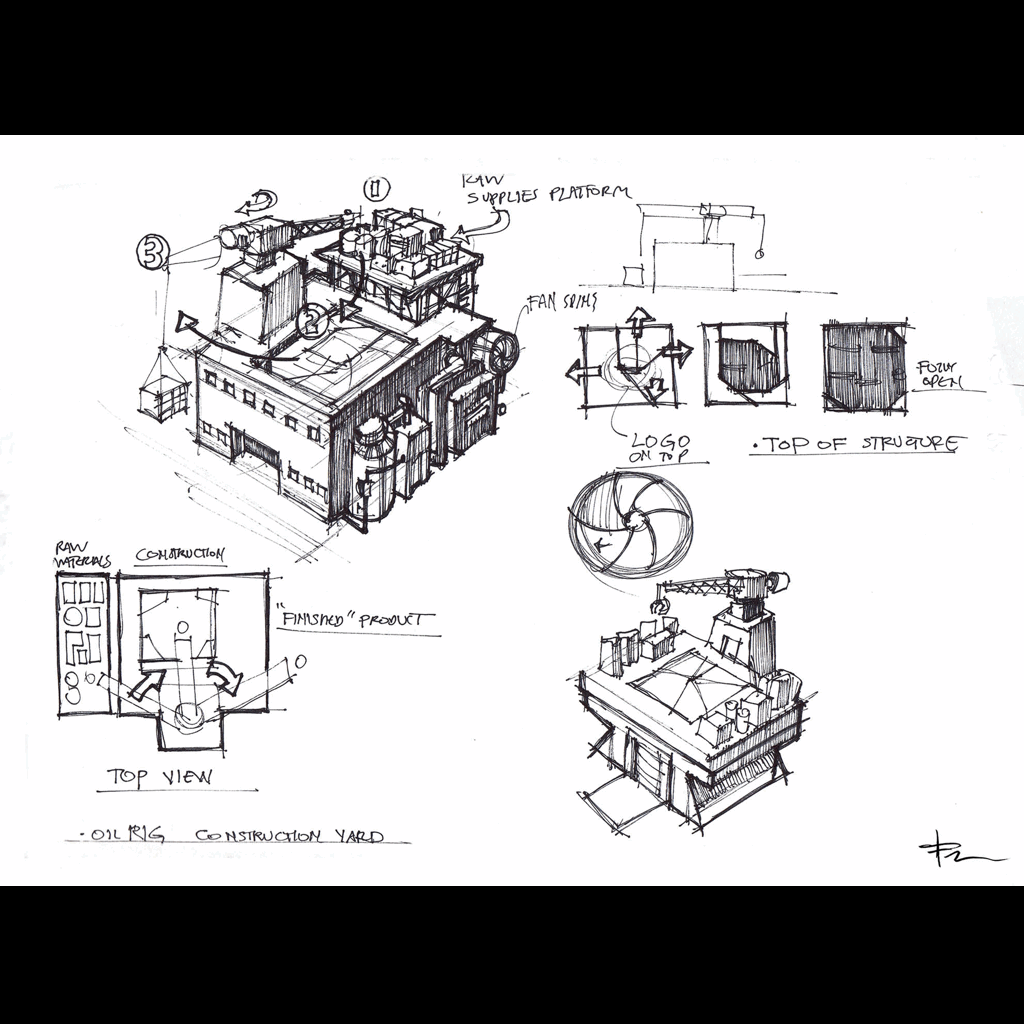 1
RAW
SUPPLIES PLATFORM
3
2
FAN SPINS
FULLY
OPEN
LOGO
ON TOP
• TOP OF STRUCTURE
RAW
MATERIALS
CONSTRUCTION
"FINISHED" PRODUCT
TOP VIEW
• OIL RIG CONSTRUCTION YARD